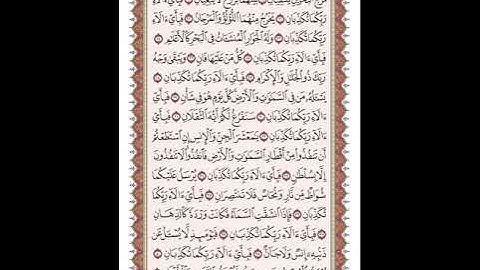 مَرَجَ ٱلْبَحْرَيْنِ يَلْتَقِيَانِ ۝ بَيْنَهُمَا بَرْزَخٌ لَّا يَبْغِيَانِ ۝ فَبِأَيِّ ءَالَآءِ
رَبِّكُمَا تُكَذِّبَانِ ۝ يَخْرُجُ مِنْهُمَا ٱللُّؤْلُؤُ وَٱلْمَرْجَانُ ۝ فَبِأَيِّ ءَالَآءِ
رَبِّكُمَا تُكَذِّبَانِ ۝ وَلَهُ ٱلْجَوَارِ ٱلْمُنشَـَٔاتُ فِي ٱلْبَحْرِ كَٱلْأَعْلَٰمِ ۝
فَبِأَيِّ ءَالَآءِ رَبِّكُمَا تُكَذِّبَانِ ۝ كُلُّ مَنْ عَلَيْهَا فَانٍ ۝ وَيَبْقَىٰ وَجْهُ
رَبِّكَ ذُو ٱلْجَلَٰلِ وَٱلْإِكْرَامِ ۝ فَبِأَيِّ ءَالَآءِ رَبِّكُمَا تُكَذِّبَانِ ۝
يَسْـَٔلُهُۥ مَن فِي ٱلسَّمَٰوَٰتِ وَٱلْأَرْضِ كُلَّ يَوْمٍ هُوَ فِي شَأْنٍ ۝ فَبِأَيِّ
ءَالَآءِ رَبِّكُمَا تُكَذِّبَانِ ۝ سَنَفْرُغُ لَكُمْ أَيُّهَ ٱلثَّقَلَانِ ۝ فَبِأَيِّ
ءَالَآءِ رَبِّكُمَا تُكَذِّبَانِ ۝ يَٰمَعْشَرَ ٱلْجِنِّ وَٱلْإِنسِ إِنِ ٱسْتَطَعْتُمْ
أَن تَنفُذُوا۟ مِنْ أَقْطَارِ ٱلسَّمَٰوَٰتِ وَٱلْأَرْضِ فَٱنفُذُوا۟ لَا تَنفُذُونَ
إِلَّا بِسُلْطَٰنٍ ۝ فَبِأَيِّ ءَالَآءِ رَبِّكُمَا تُكَذِّبَانِ ۝ يُرْسَلُ عَلَيْكُمَا
شُوَاظٌ مِّن نَّارٍ وَنُحَاسٌ فَلَا تَنتَصِرَانِ ۝ فَبِأَيِّ ءَالَآءِ رَبِّكُمَا
تُكَذِّبَانِ ۝ فَإِذَا ٱنشَقَّتِ ٱلسَّمَآءُ فَكَانَتْ وَرْدَةً كَٱلدِّهَانِ
۝ فَبِأَيِّ ءَالَآءِ رَبِّكُمَا تُكَذِّبَانِ ۝ فَيَوْمَئِذٍ لَّا يُسْـَٔلُ عَن
ذَنۢبِهِۦٓ إِنسٌ وَلَا جَآنٌّ ۝ فَبِأَيِّ ءَالَآءِ رَبِّكُمَا تُكَذِّبَانِ ۝